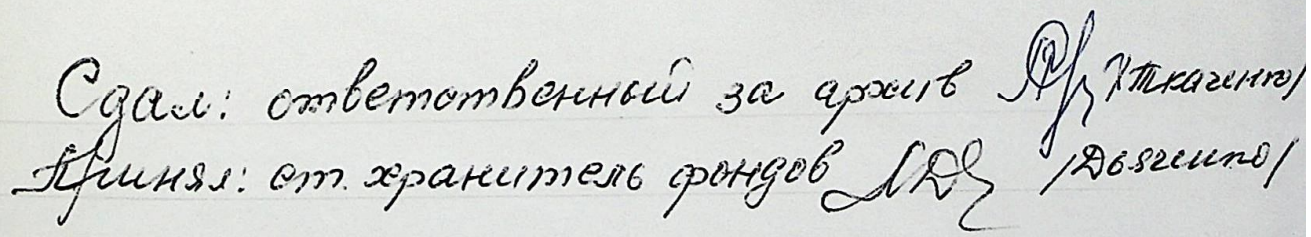 Сдал: ответственный за архив /Ткаченко/
Принял: ст. хранитель фондов /Дьяченко/